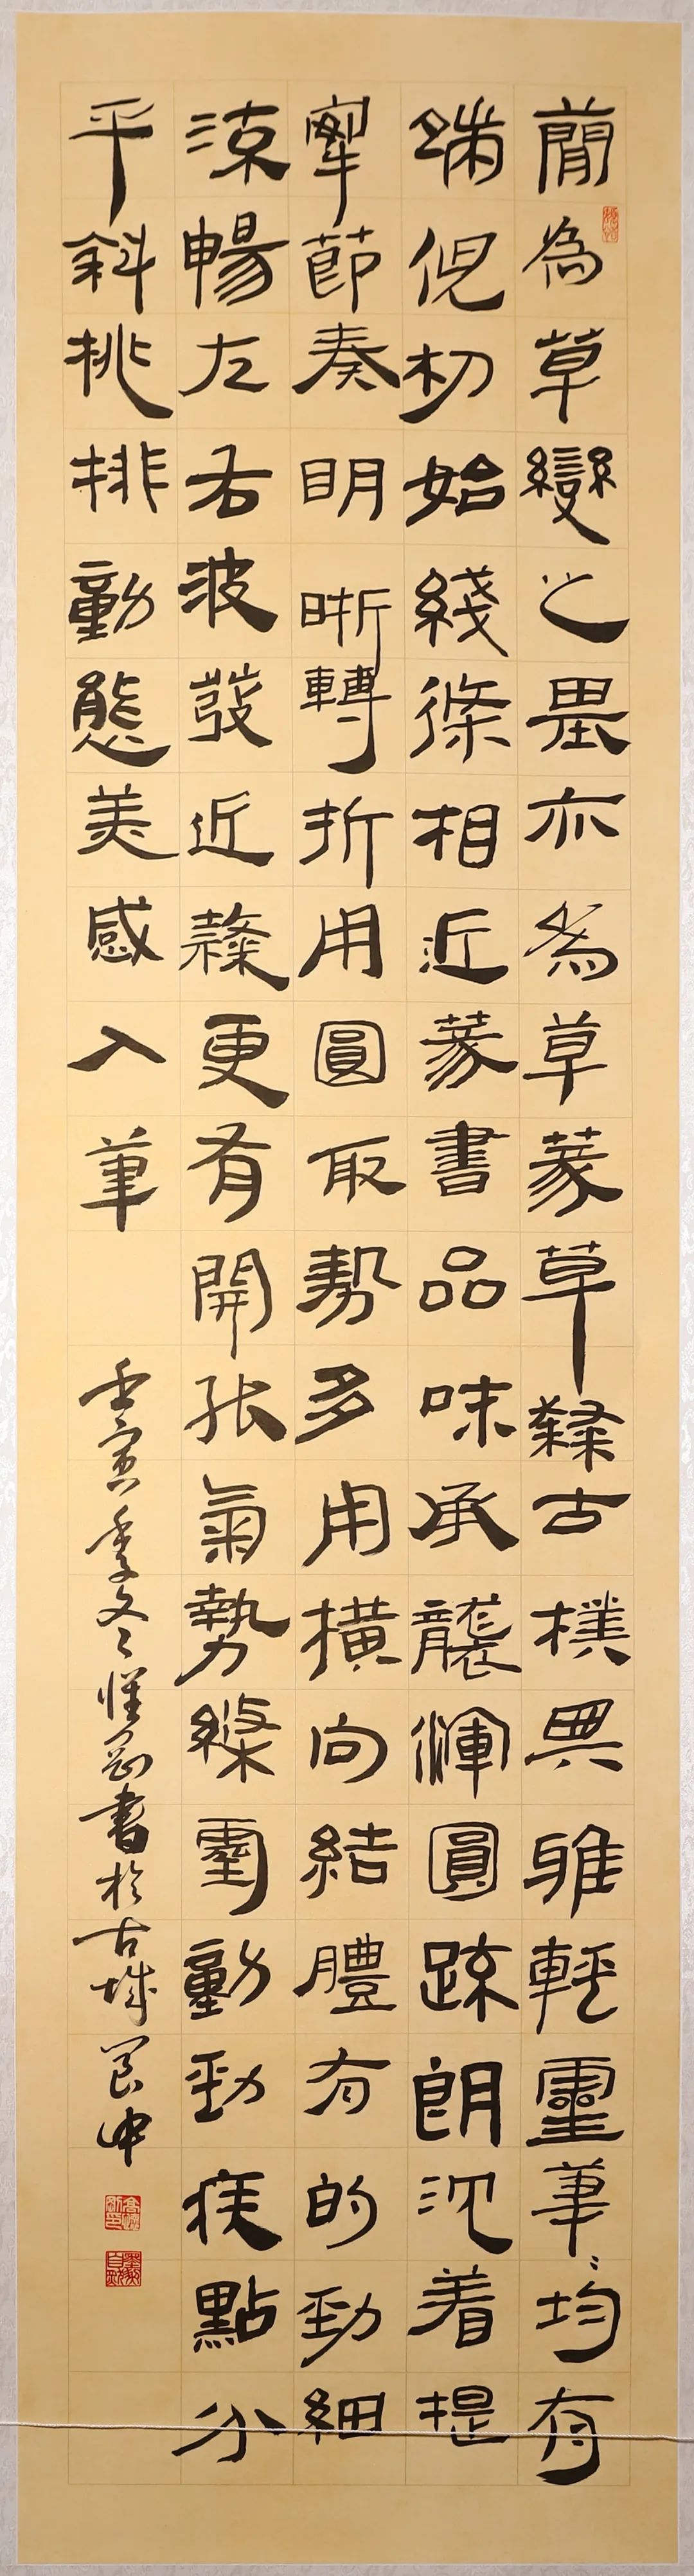 蕳為草變之畏亦為草篆草隸古樸異雅輕靈筆筆均有
端倪初始綫條相近篆書品味承襲渾圓疏朗沉着提
掣節奏明晰轉折用圓取勢多用橫向結體有的勁細
流暢左右波發近隸更有開張氣勢綠靈動勁疾點分
平斜挑排動態美感入筆
壬寅季冬惟剛書於古城閬中